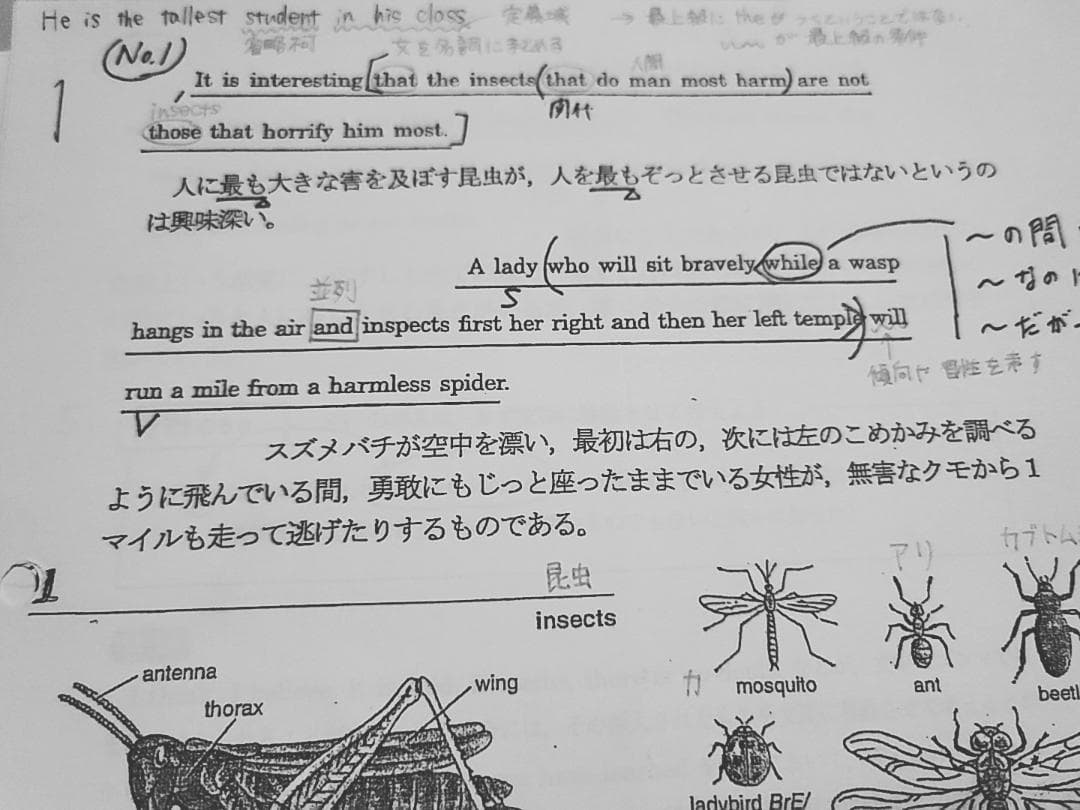 He is the tallest student in his class 定義域 → 最上級に the が
省略可 文を名詞にまとめる が 最上級の
No.1
人間
1 It is interesting [that the insects (that do man most harm) are not
関代
insects
those that horrify him most.]
人に最も大きな害を及ぼす昆虫が，人を最もぞっとさせる昆虫ではないというの
は興味深い。
〜の間
A lady (who will sit bravely while a wasp
S
〜なの
並列
hangs in the air and inspects first her right and then her left temple) will
〜だが
傾向や習性を示す
run a mile from a harmless spider.
V
スズメバチが空中を漂い，最初は右の，次には左のこめかみを調べる
ように飛んでいる間，勇敢にもじっと座ったままでいる女性が，無害なクモから1
マイルも走って逃げたりするものである。
1 昆虫 アリ カブトム
insects
antenna
thorax
wing
カ mosquito ant beetl
ladybird BrE/